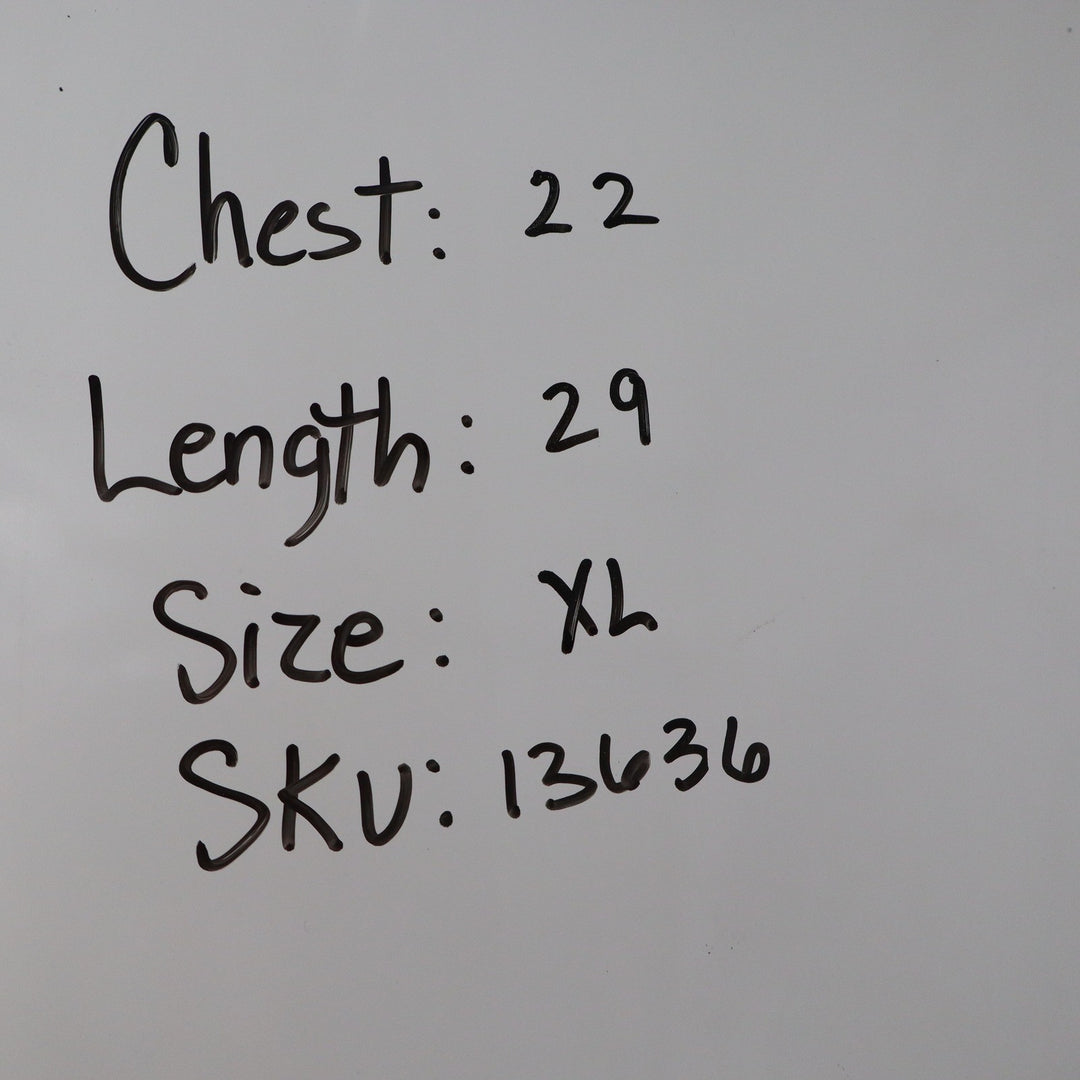 Chest: 22
Length: 29
Size: XL
SKU: 13636